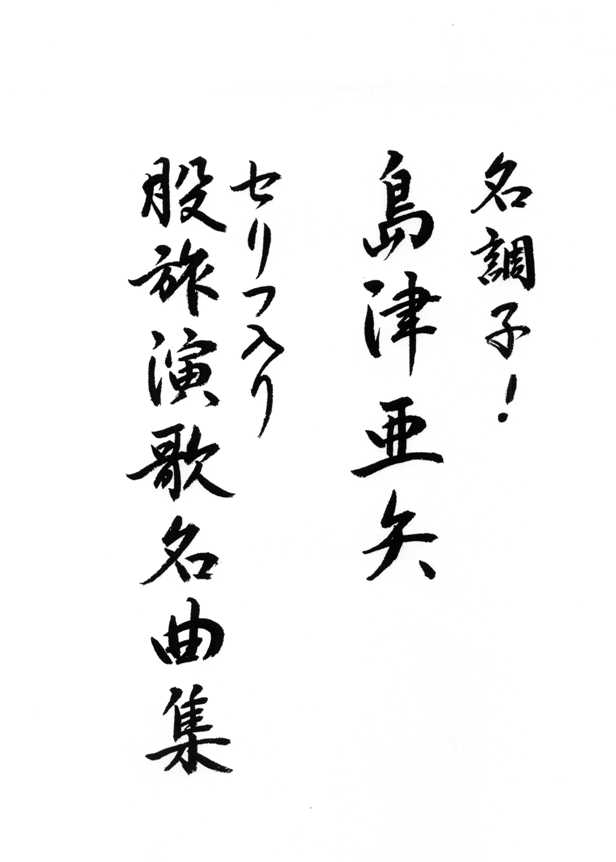 名調子!
島津亜矢
セリフ入り
股旅演歌名曲集